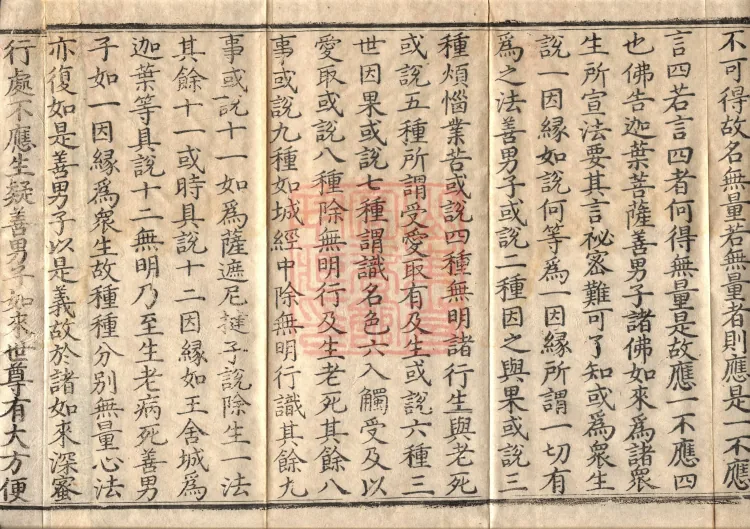 不可得故名無量若無量者則應是一不應
言四若言四者何得無量是故應一不應四
也佛告迦葉菩薩善男子諸佛如來爲諸衆
生所宣法要其言祕宻難可了知或爲衆生
說一因緣如說何等爲一因緣所謂一切有
爲之法善男子或說二種因之與果或說三
種煩惱業苦或說四種無明諸行生與老死
或說五種所謂受愛取有及生或說六種三
世因果或說七種謂識名色六入觸受及以
愛取或說八種除無明行及生老死其餘八
事或說九種如城經中除無明行識其餘九
事或說十一如爲薩遮尼揵子說除生一法
其餘十一或時具說十二因緣如王舍城爲
迦葉等具說十二無明乃至生老病死善男
子如一因緣爲衆生故種種分別無量心法
亦復如是善男子以是義故於諸如來深宻
行處不應生疑善男子如來世尊有大方便